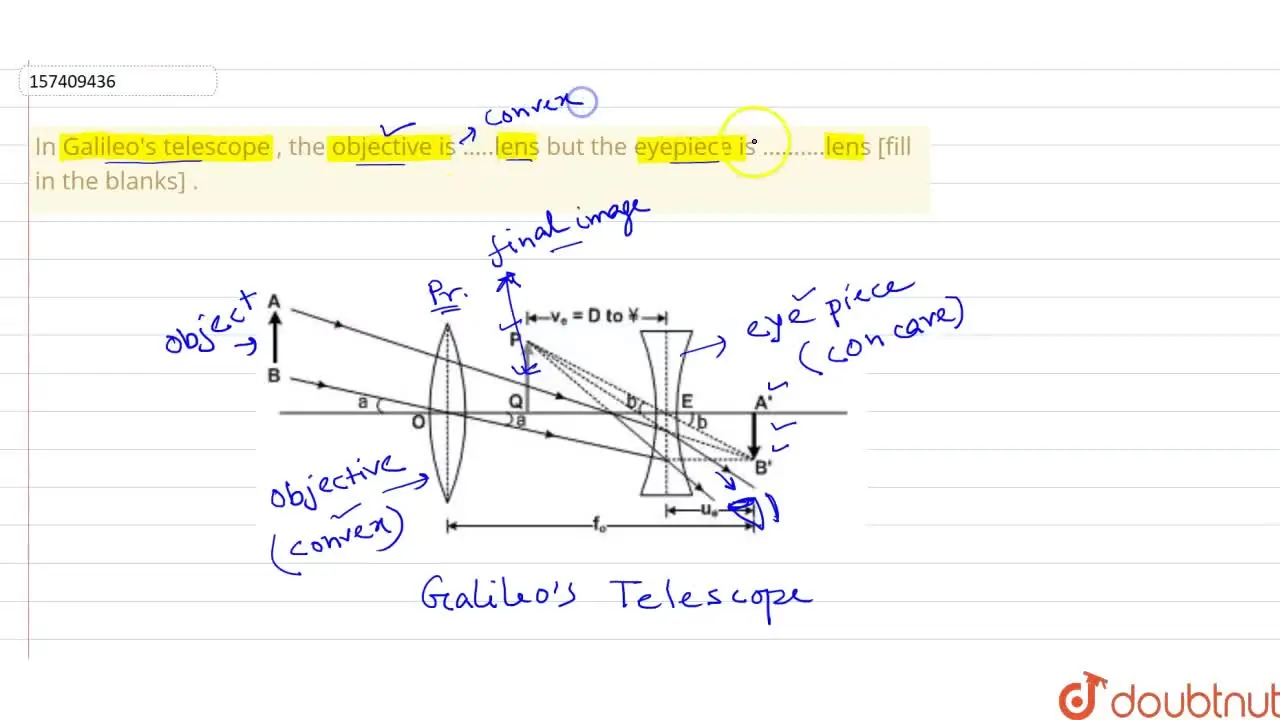 157409436
convex
In Galileo's telescope , the objective is ......lens but the eyepiece is ..........lens [fill
in the blanks] .
final image
Pr.
object
A
B
v_e = D to ¥
P
eye piece
(concave)
a
O
Q
a
b
E
b
A'
B'
objective
(convex)
u_e
f_o
Galileo's Telescope
doubtnut